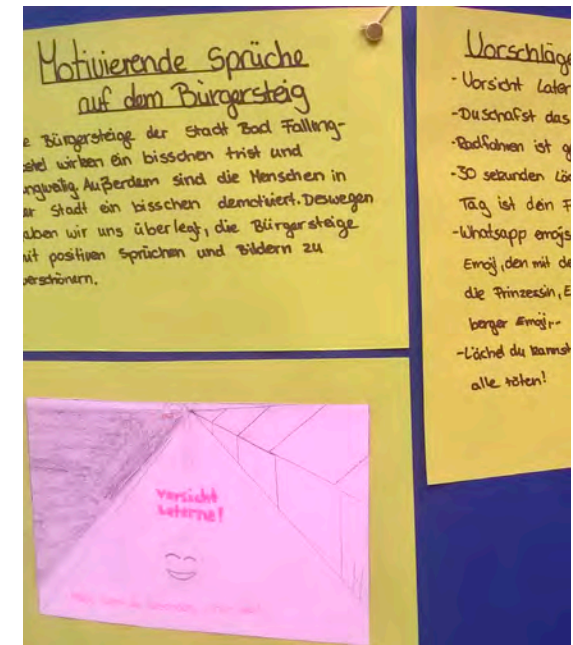 Motivierende Sprüche
auf dem Bürgersteig
e Bürgersteige der Stadt Bad Falling-
stel wirken ein bisschen trist und
ngweilig. Außerdem sind die Menschen in
er Stadt ein bisschen demotiviert. Deswegen
aben wir uns überlegt, die Bürgersteige
it positiven Sprüchen und Bildern zu
erschönern.
vorsicht
Laterne!
Vorschläge
- Vorsicht Later
- Du schafst das
- Radfahren ist g
- 30 sekunden Läc
Tag ist dein F
- Whatsapp emojs
Emoji, den mit de
die Prinzessin, E
berger Emoji,-
- Lächel du kannst
alle töten!